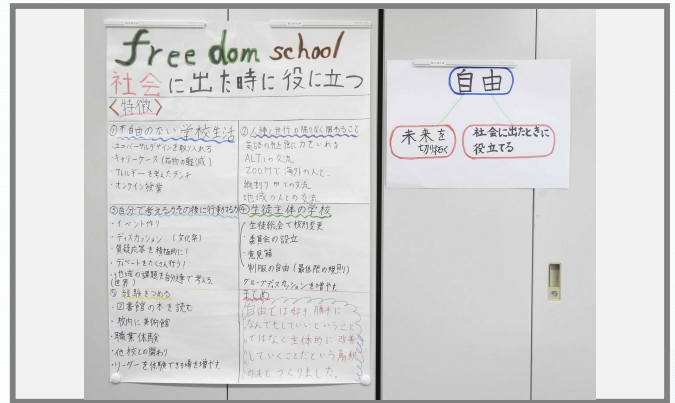 freedom school
社会に出た時に役に立つ
〈特徴〉
①不自由のない学校生活
・ユニバーサルデザインを取り入れる
・キャリーケース(荷物の軽減)
・アレルギーを考えたランチ
・オンライン授業
②人種、世代の限りなく関わること
英語の勉強に力をいれる
ALTとの交流
ZOOMで海外の人と…
縦割りでの交流
地域の人との交流
③自分で考える力その後に行動する力
・イベント作り
・ディスカッション (文化祭)
・質疑応答を積極的に!
・ディベートをたくさん行う!
・地域の課題を自分達で考える
(世界)
④生徒主体の学校
生徒総会で校則変更
・委員会の設立
・意見箱
・制服の自由(最低限の規則)
グループディスカッションを増やす
⑤経験をつめる
・図書館の本を読む
・校内に美術館
・職業体験
・他校との関わり
・リーダーを体験できる場を増やす
まとめ
自由とは好き勝手に
なんでもしていいということ
ではなく主体的に改善
していくことだという解釈
のもとつくりました。
自由
未来を
切りひらく
社会に出たときに
役立てる